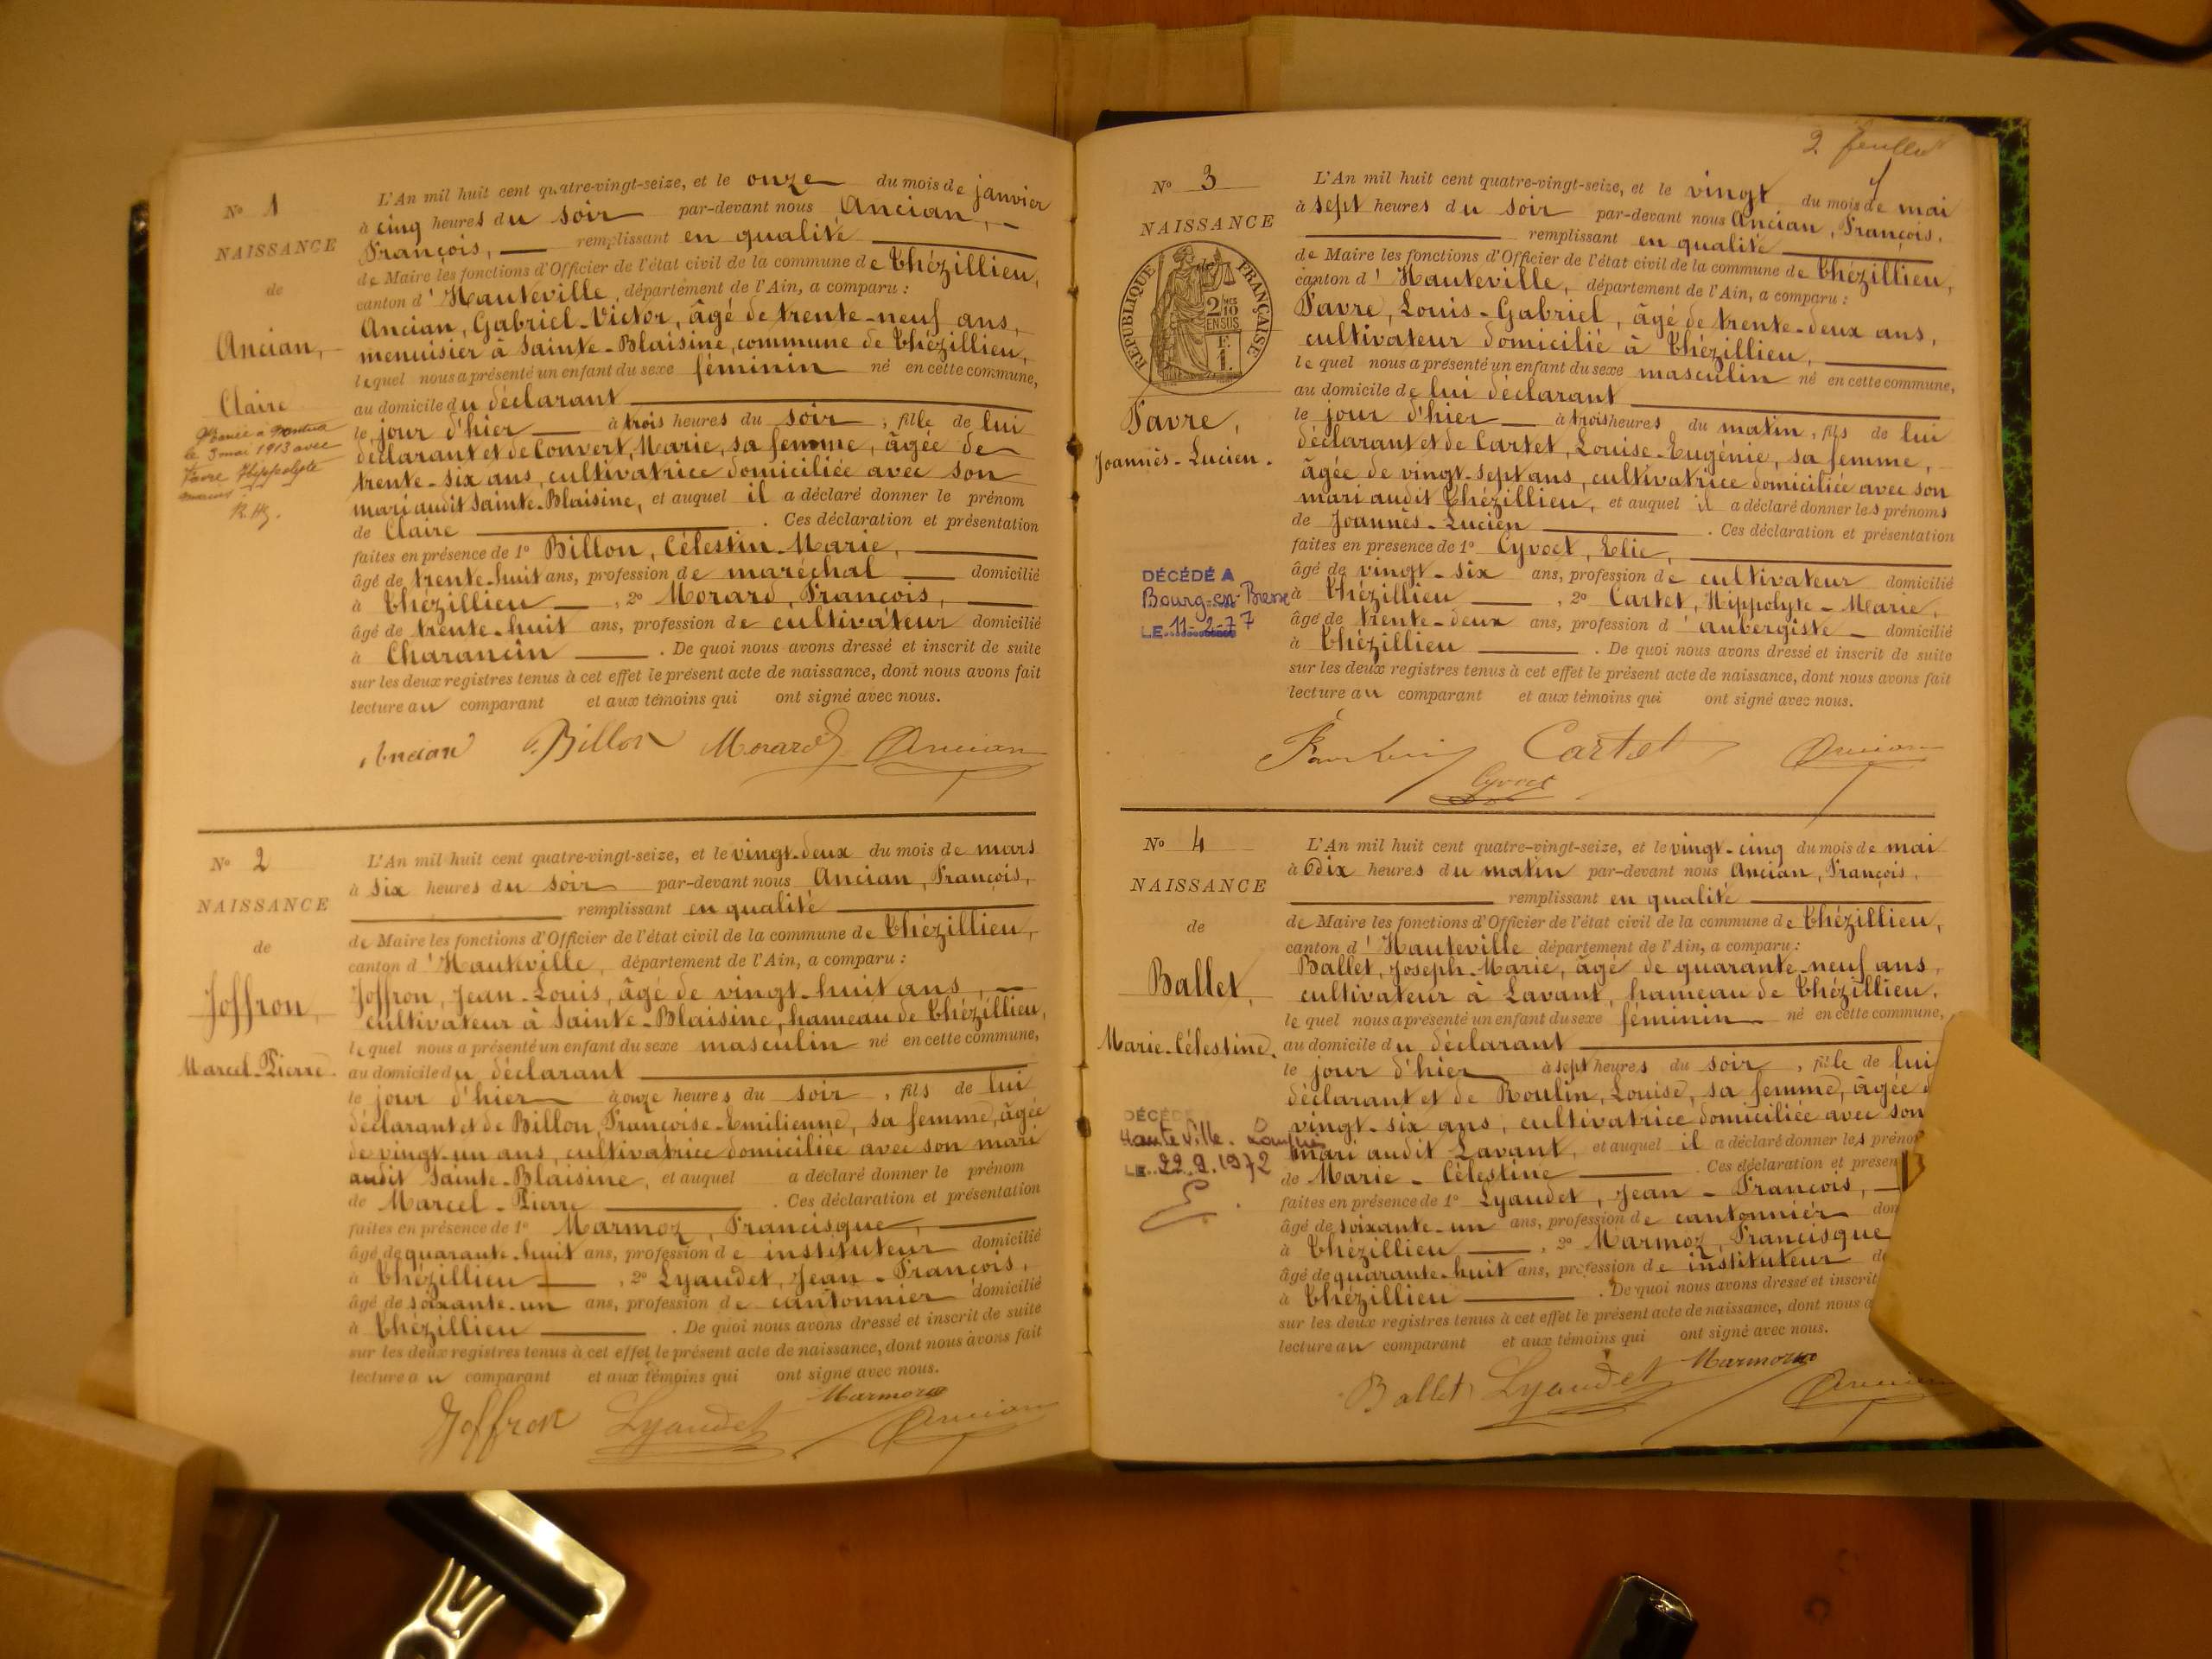 Nº 1
NAISSANCE
de
Ancian,
Claire
Mariée à Nantua
le 3 mai 1913 avec
Favre Hippolyte
L'An mil huit cent quatre-vingt-seize, et le onze du mois de janvier
à cinq heures du soir par-devant nous Ancian,
François, remplissant en qualité
de Maire les fonctions d'Officier de l'état civil de la commune de Thézillieu,
canton d'Hauteville, département de l'Ain, a comparu :
Ancian, Gabriel-Victor, âgé de trente-neuf ans,
menuisier à Sainte-Blaisine, commune de Thézillieu,
lequel nous a présenté un enfant du sexe féminin né en cette commune,
au domicile du déclarant
le jour d'hier à trois heures du soir, fille de lui
déclarant et de Convert, Marie, sa femme, âgée de
trente-six ans, cultivatrice domiciliée avec son
mari audit Sainte-Blaisine, et auquel il a déclaré donner le prénom
de Claire . Ces déclaration et présentation
faites en présence de 1º Billon, Célestin-Marie,
âgé de trente-huit ans, profession de maréchal domicilié
à Thézillieu , 2º Morard, François,
âgé de trente-huit ans, profession de cultivateur domicilié
à Charancin . De quoi nous avons dressé et inscrit de suite
sur les deux registres tenus à cet effet le présent acte de naissance, dont nous avons fait
lecture au comparant et aux témoins qui ont signé avec nous.
Ancian Billon Morard Ancian
Nº 2
NAISSANCE
de
Joffron,
Marcel-Pierre.
L'An mil huit cent quatre-vingt-seize, et le vingt-deux du mois de mars
à six heures du soir par-devant nous Ancian, François,
remplissant en qualité
de Maire les fonctions d'Officier de l'état civil de la commune de Thézillieu,
canton d'Hauteville, département de l'Ain, a comparu :
Joffron, Jean-Louis, âgé de vingt-huit ans,
cultivateur à Sainte-Blaisine, hameau de Thézillieu,
lequel nous a présenté un enfant du sexe masculin né en cette commune,
au domicile du déclarant
le jour d'hier à onze heures du soir, fils de lui
déclarant et de Billon, Françoise-Emilienne, sa femme, âgée
de vingt-un ans, cultivatrice domiciliée avec son mari
audit Sainte-Blaisine, et auquel a déclaré donner le prénom
de Marcel-Pierre . Ces déclaration et présentation
faites en présence de 1º Marmoz, Francisque,
âgé de quarante-huit ans, profession de instituteur domicilié
à Thézillieu , 2º Lyaudet, Jean-François,
âgé de soixante-un ans, profession de cantonnier domicilié
à Thézillieu . De quoi nous avons dressé et inscrit de suite
sur les deux registres tenus à cet effet le présent acte de naissance, dont nous avons fait
lecture au comparant et aux témoins qui ont signé avec nous.
Joffron Lyaudet Marmoz Ancian
2 feuillet
Nº 3
NAISSANCE
de
RÉPUBLIQUE FRANÇAISE
2/10
EN SUS
F.
1.
Favre,
Joannès-Lucien.
DÉCÉDÉ A
Bourg-en-Bresse
LE 11-2-77
L'An mil huit cent quatre-vingt-seize, et le vingt du mois de mai
à sept heures du soir par-devant nous Ancian, François,
remplissant en qualité
de Maire les fonctions d'Officier de l'état civil de la commune de Thézillieu,
canton d'Hauteville, département de l'Ain, a comparu :
Favre, Louis-Gabriel, âgé de trente-deux ans,
cultivateur domicilié à Thézillieu,
lequel nous a présenté un enfant du sexe masculin né en cette commune,
au domicile de lui déclarant
le jour d'hier à trois heures du matin, fils de lui
déclarant et de Cartet, Louise-Eugénie, sa femme,
âgée de vingt-sept ans, cultivatrice domiciliée avec son
mari audit Thézillieu, et auquel il a déclaré donner les prénoms
de Joannès-Lucien . Ces déclaration et présentation
faites en présence de 1º Cyvoct, Elie,
âgé de vingt-six ans, profession de cultivateur domicilié
à Thézillieu , 2º Cartet, Hippolyte-Marie,
âgé de trente-deux ans, profession d'aubergiste domicilié
à Thézillieu . De quoi nous avons dressé et inscrit de suite
sur les deux registres tenus à cet effet le présent acte de naissance, dont nous avons fait
lecture au comparant et aux témoins qui ont signé avec nous.
Cartet Ancian
Cyvoct
Nº 4
NAISSANCE
de
Ballet,
Marie-Célestine.
DÉCÉDÉ
Hauteville-Lompnes
LE 22.9.1972
L'An mil huit cent quatre-vingt-seize, et le vingt-cinq du mois de mai
à dix heures du matin par-devant nous Ancian, François,
remplissant en qualité
de Maire les fonctions d'Officier de l'état civil de la commune de Thézillieu,
canton d'Hauteville département de l'Ain, a comparu :
Ballet, Joseph-Marie, âgé de quarante-neuf ans,
cultivateur à Lavant, hameau de Thézillieu,
lequel nous a présenté un enfant du sexe féminin né en cette commune,
au domicile du déclarant
le jour d'hier à sept heures du soir, fille de lui
déclarant et de Roulin, Louise, sa femme, âgée
vingt-six ans, cultivatrice domiciliée avec son
mari audit Lavant, et auquel il a déclaré donner les préno
de Marie-Célestine . Ces déclaration et présen
faites en présence de 1º Lyaudet, Jean-François,
âgé de soixante-un ans, profession de cantonnier dom
à Thézillieu , 2º Marmoz, Francisque
âgé de quarante-huit ans, profession de instituteur do
à Thézillieu . De quoi nous avons dressé et inscrit
sur les deux registres tenus à cet effet le présent acte de naissance, dont nous a
lecture au comparant et aux témoins qui ont signé avec nous.
Ballet Lyaudet Marmoz Ancian